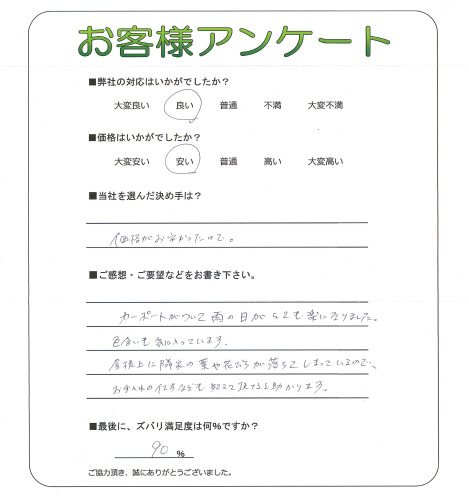 お客様アンケート
■弊社の対応はいかがでしたか？
大変良い 良い 普通 不満 大変不満
■価格はいかがでしたか？
大変安い 安い 普通 高い 大変高い
■当社を選んだ決め手は？
価格がお安かったので。
■ご感想・ご要望などをお書き下さい。
カーポートがついて雨の日がとても楽になりました。
色合いも気に入っています。
屋根上に隣家の葉や花びらが落ちてしまっているので、
お手入れの仕方なども教えて頂けると助かります。
■最後に、ズバリ満足度は何%ですか？
90 %
ご協力頂き、誠にありがとうございました。